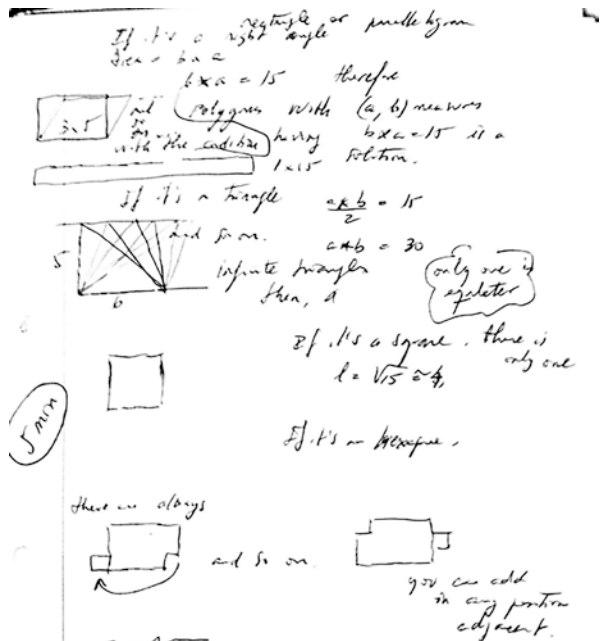 rectangle or parallelogram
If it's a right angle
Area = b x a
b x a = 15 therefore
3x5 and so on polygons with (a, b) measures
with the condition having b x a = 15 is a
1x15 solution.
If it's a triangle a x b / 2 = 15
and so on. a x b = 30
5 infinite triangles
6 then,
only one is
equilater
If it's a square, there is
only one
l = √15 ≅ 4,
5 min
If it's an
there are always
and so on
you can add
in any position
adjacent.